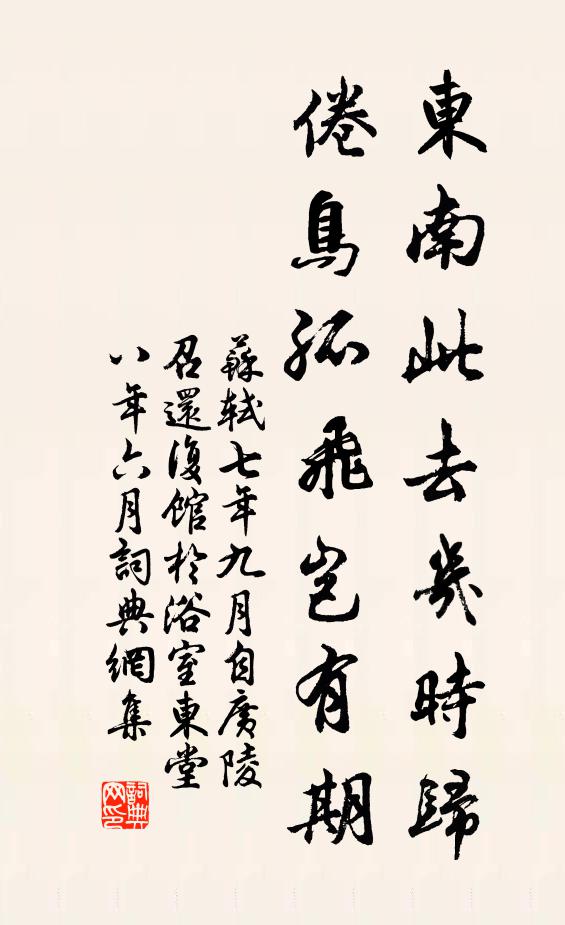 東南此去幾時歸
倦鳥孤飛豈有期
蘇軾七年九月自廣陵
召還復館於浴室東堂
八年六月詞典網集
詞典
网印